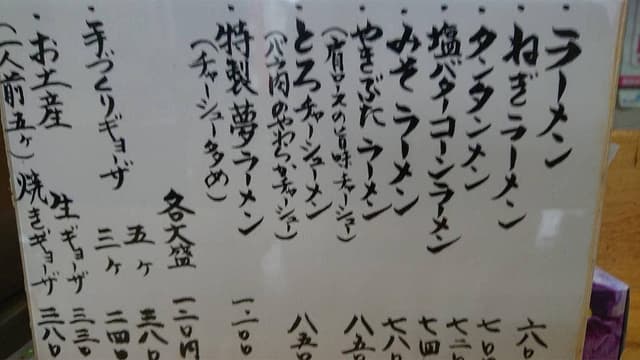 ・ラーメン 六八〇
・ねぎラーメン 七〇
・タンタンメン 七二〇
・塩バターコーンラーメン 七四
・みそラーメン 七八〇
・やきぶたラーメン 八五〇
(肩ロースの旨味チャーシュー)
・とろチャーシューメン 八五〇
(バラ肉のやわらかチャーシュー)
・特製夢ラーメン 一、二〇〇
(チャーシュー多め)
各大盛 一二〇円
・手づくりギョーザ
五ヶ 三八〇
三ヶ 二四〇
・お土産 生ギョーザ 三三〇
(一人前五ヶ) 焼きギョーザ 三八〇